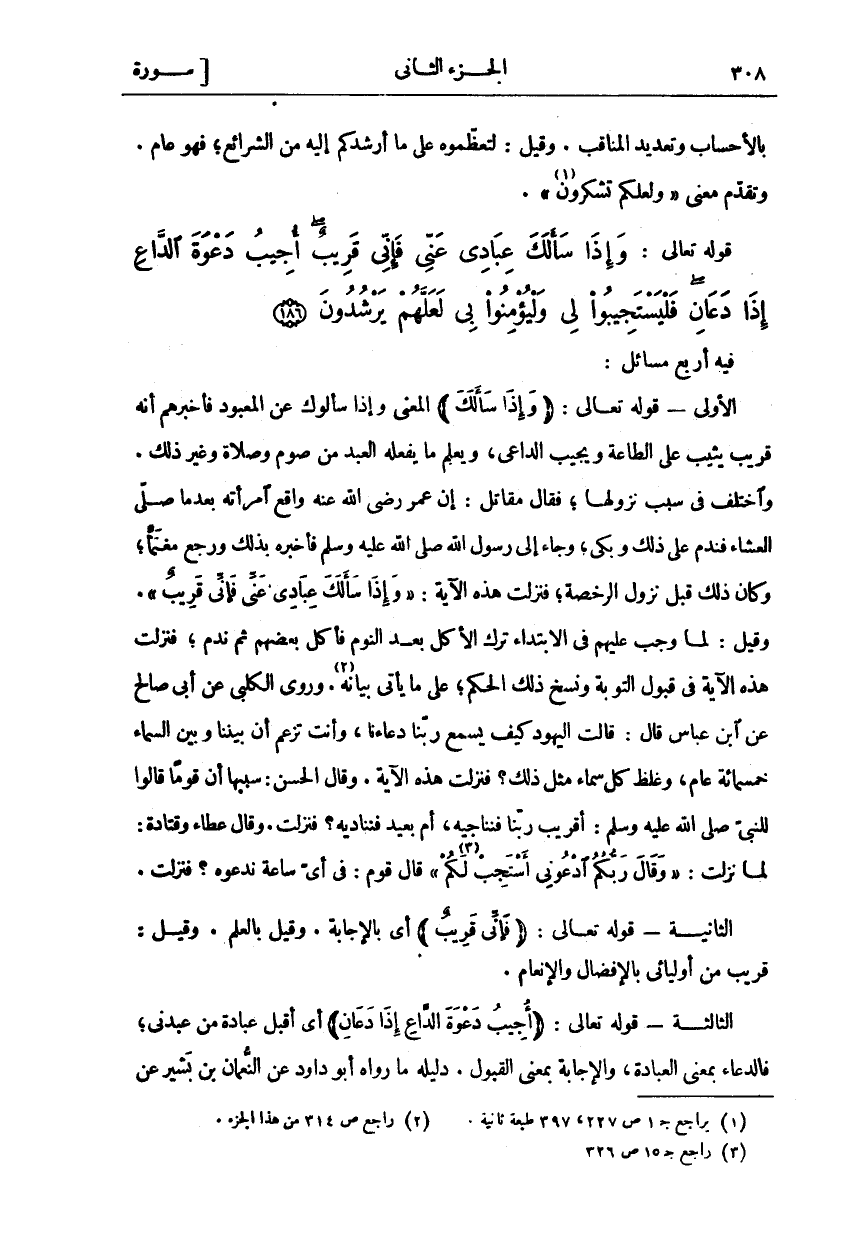 ٣٠٨ الجـزء الثـانى [ ســورة
بالأحساب وتعديد المناقب . وقيل : لتعظّموه على ما أرشدكم إليه من الشرائع؛ فهو عام .
وتقدّم معنى « ولعلكم تشكرون(١) » .
قوله تعالى : وَإِذَا سَأَلَكَ عِبَادِى عَنِّى فَإِنِّى قَرِيبٌ ۖ أُجِيبُ دَعْوَةَ ٱلدَّاعِ
إِذَا دَعَانِ ۖ فَلْيَسْتَجِيبُوا۟ لِى وَلْيُؤْمِنُوا۟ بِى لَعَلَّهُمْ يَرْشُدُونَ ﴿١٨٦﴾
فيه أربع مسائل :
الأولى — قوله تعـالى : ﴿ وَإِذَا سَأَلَكَ ﴾ المعنى وإذا سألوك عن المعبود فأخبرهم أنه
قريب يثيب على الطاعة ويجيب الداعى، ويعلم ما يفعله العبد من صوم وصلاة وغير ذلك .
وٱختلف فى سبب نزولهـا ؛ فقال مقاتل : إن عمر رضى الله عنه واقع ٱمرأته بعدما صـلّى
العشاء فندم على ذلك وبكى؛ وجاء إلى رسول الله صلى الله عليه وسلم فأخبره بذلك ورجع مغتمًّا؛
وكان ذلك قبل نزول الرخصة؛ فنزلت هذه الآية : « وَإِذَا سَأَلَكَ عِبَادِى عَنِّى فَإِنِّى قَرِيبٌ » .
وقيل : لمـا وجب عليهم فى الابتداء ترك الأكل بعـد النوم فأكل بعضهم ثم ندم ؛ فنزلت
هذه الآية فى قبول التوبة ونسخ ذلك الحكم؛ على ما يأتى بيانه(٢) . وروى الكلبي عن أبى صالح
عن ٱبن عباس قال : قالت اليهود كيف يسمع ربّنا دعاءنا ، وأنت تزعم أن بيننا وبين السماء
خمسمائة عام، وغلظ كل سماء مثل ذلك؟ فنزلت هذه الآية . وقال الحسن: سببها أن قومًا قالوا
للنبىّ صلى الله عليه وسلم : أقريب ربّنا فنناجيه، أم بعيد فنناديه؟ فنزلت . وقال عطاء وقتادة:
لمـا نزلت : « وَقَالَ رَبُّكُمُ ٱدْعُونِى أَسْتَجِبْ لَكُمْ(٣) » قال قوم : فى أىّ ساعة ندعوه ؟ فنزلت .
الثانيـــة — قوله تعـالى : ﴿ فَإِنِّى قَرِيبٌ ﴾ أى بالإجابة . وقيل بالعلم . وقيـل :
قريب من أوليائى بالإفضال والإنعام .
الثالثـــة — قوله تعالى : ﴿أُجِيبُ دَعْوَةَ الدَّاعِ إِذَا دَعَانِ﴾ أى أقبل عبادة من عبدنى؛
فالدعاء بمعنى العبادة، والإجابة بمعنى القبول . دليله ما رواه أبو داود عن النُّعمان بن بَشير عن
(١) يراجع جـ ١ ص ٢٢٧، ٣٩٧ طبعة ثانية . (٢) راجع ص ٣١٤ من هذا الجزء .
(٣) راجع جـ ١٥ ص ٣٢٦